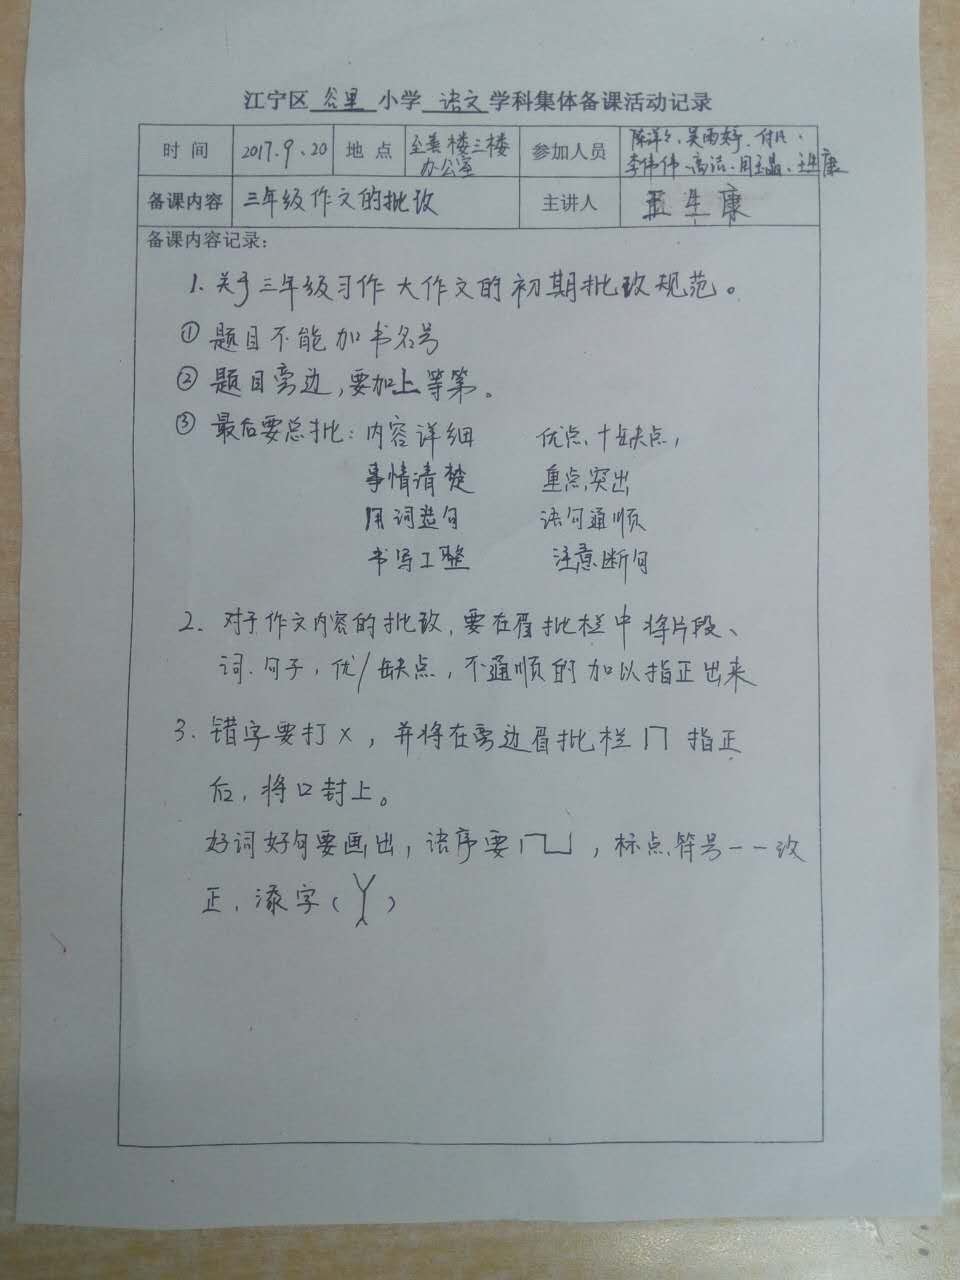 江宁区 谷里 小学 语文 学科集体备课活动记录
时 间 2017.9.20 地 点 至善楼三楼办公室 参加人员 陈洋々、吴雨婷、付凡、李伟伟、高洁、周玉晶、王生康
备课内容 三年级作文的批改 主讲人 王生康
备课内容记录:
1. 关于三年级习作 大作文的初期批改规范。
① 题目不能加书名号
② 题目旁边,要加上等第。
③ 最后要总批: 内容详细 优点、十缺点,
事情清楚 重点突出
用词造句 语句通顺
书写工整 注意断句
2. 对于作文内容的批改,要在眉批栏中将片段、
词、句子,优/缺点,不通顺的加以指正出来
3. 错字要打×,并将在旁边眉批栏 冂 指正
后,将口封上。
好词好句要画出,语序要 ,标点符号一一改
正,添字( )